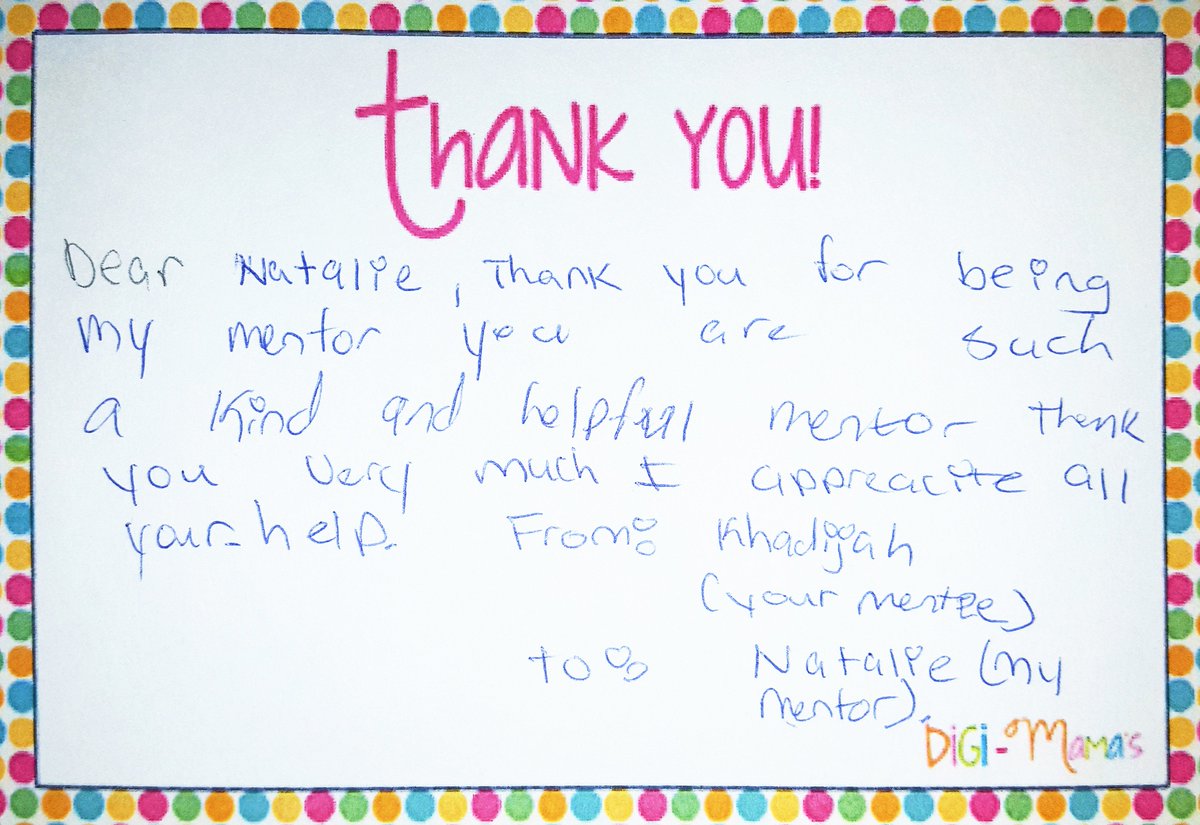 thank you!
Dear Natalie, Thank you for being
my mentor you are such
a kind and helpfull mentor thank
you very much I appreacite all
your help. From:
Khadijah
(your mentee)
to: Natalie (my
mentor).
DiGi-Mama's